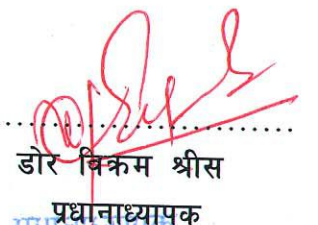 डोर विक्रम श्रीस
प्रधानाध्यापक